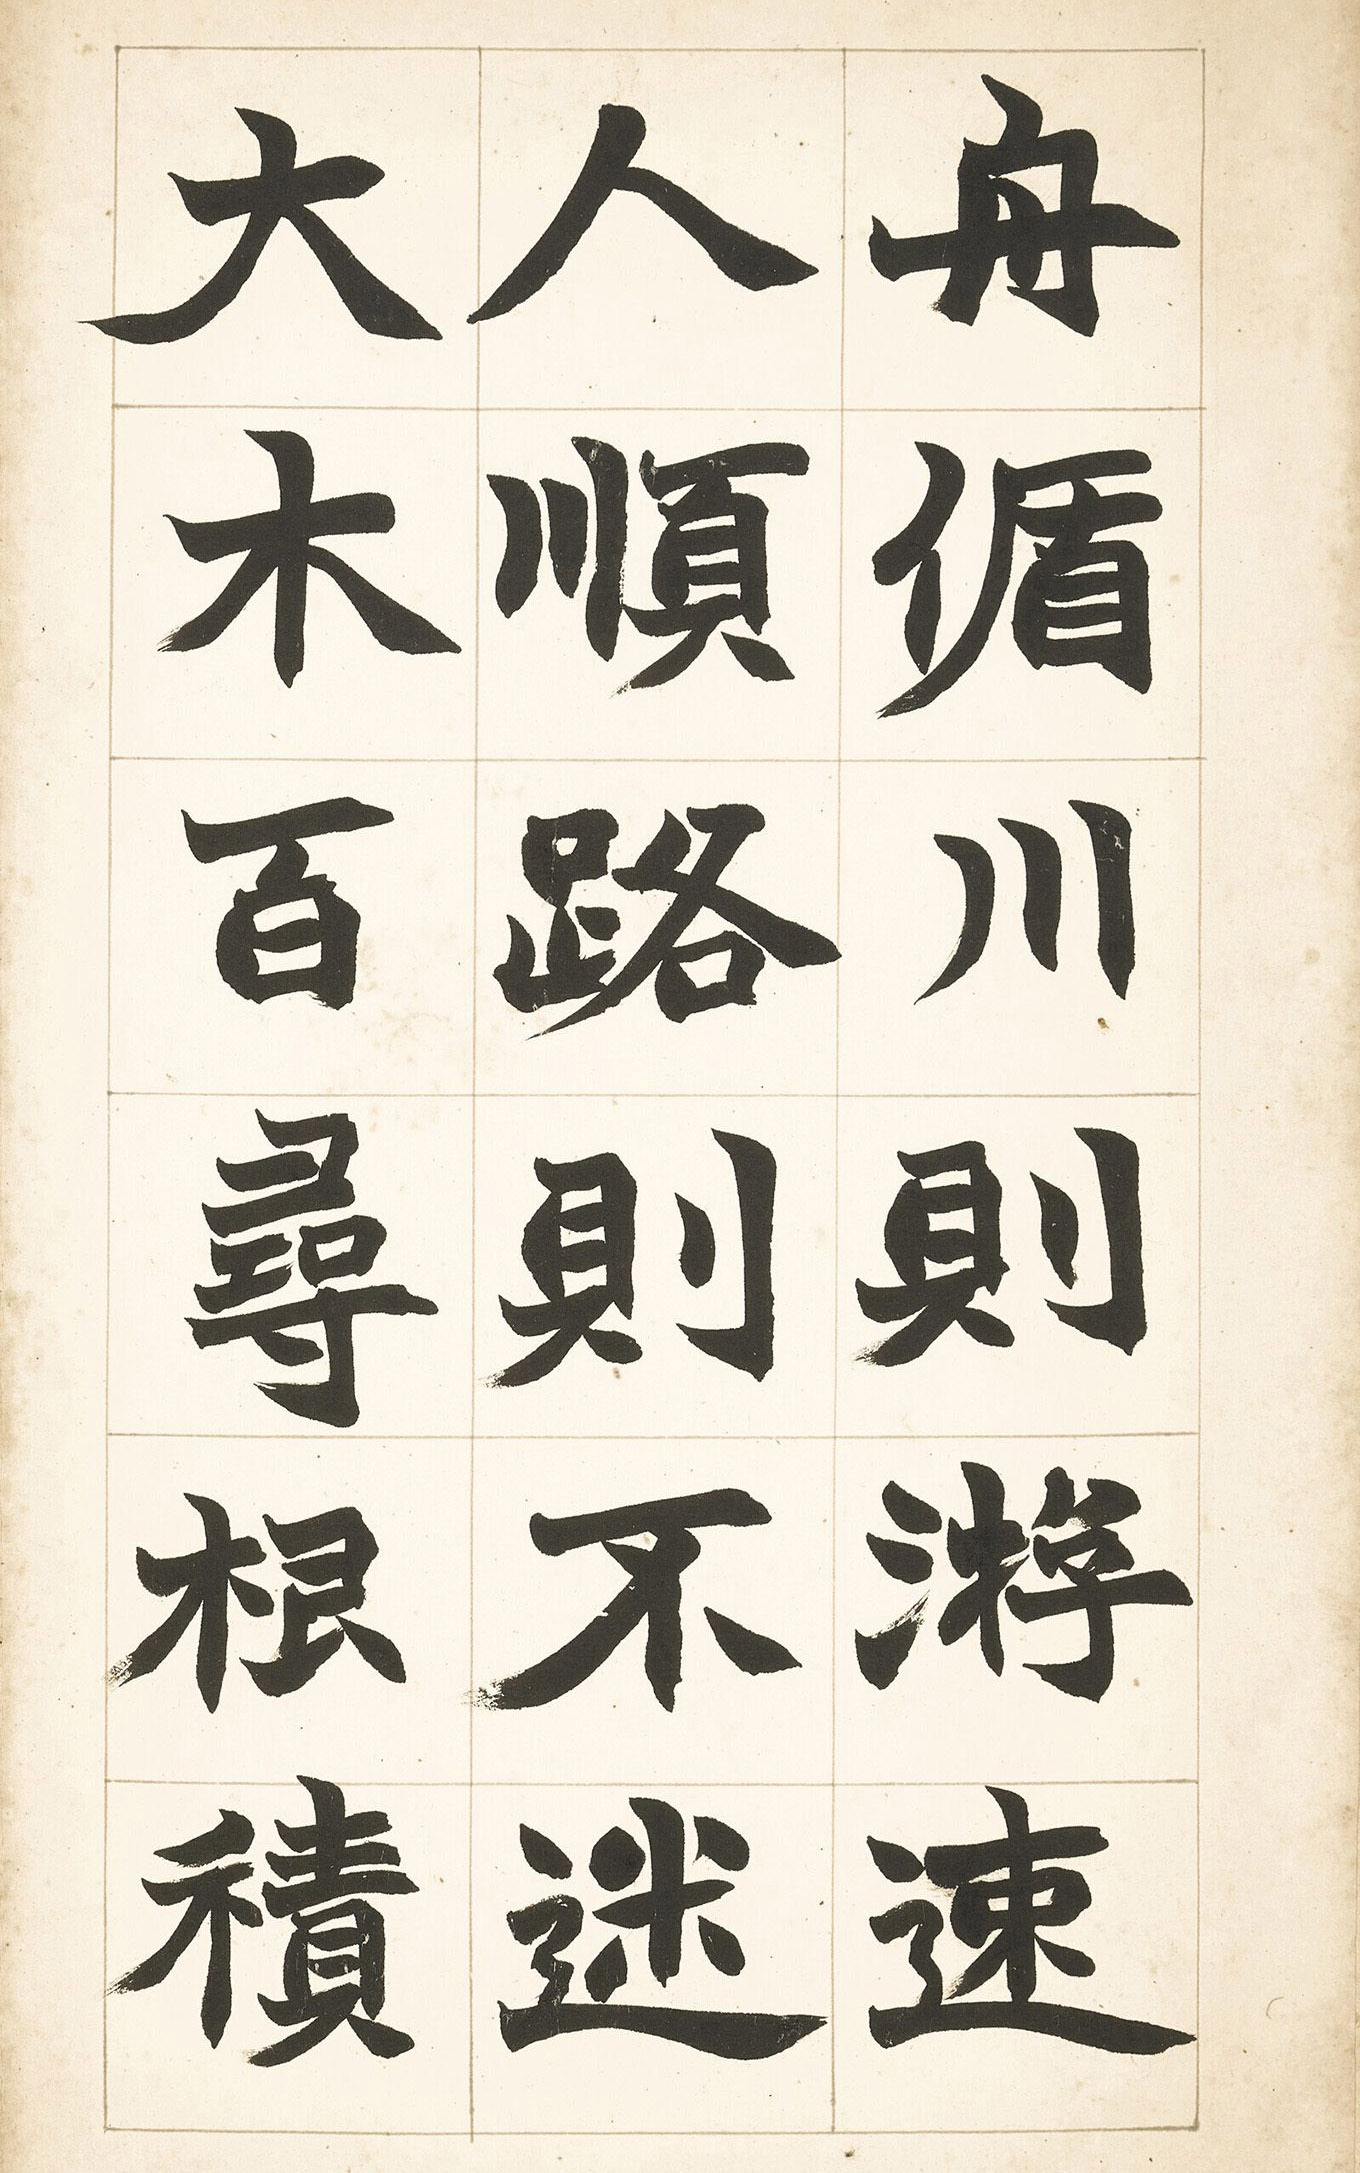 舟循川則游速
人順路則不迷
大木百尋根積